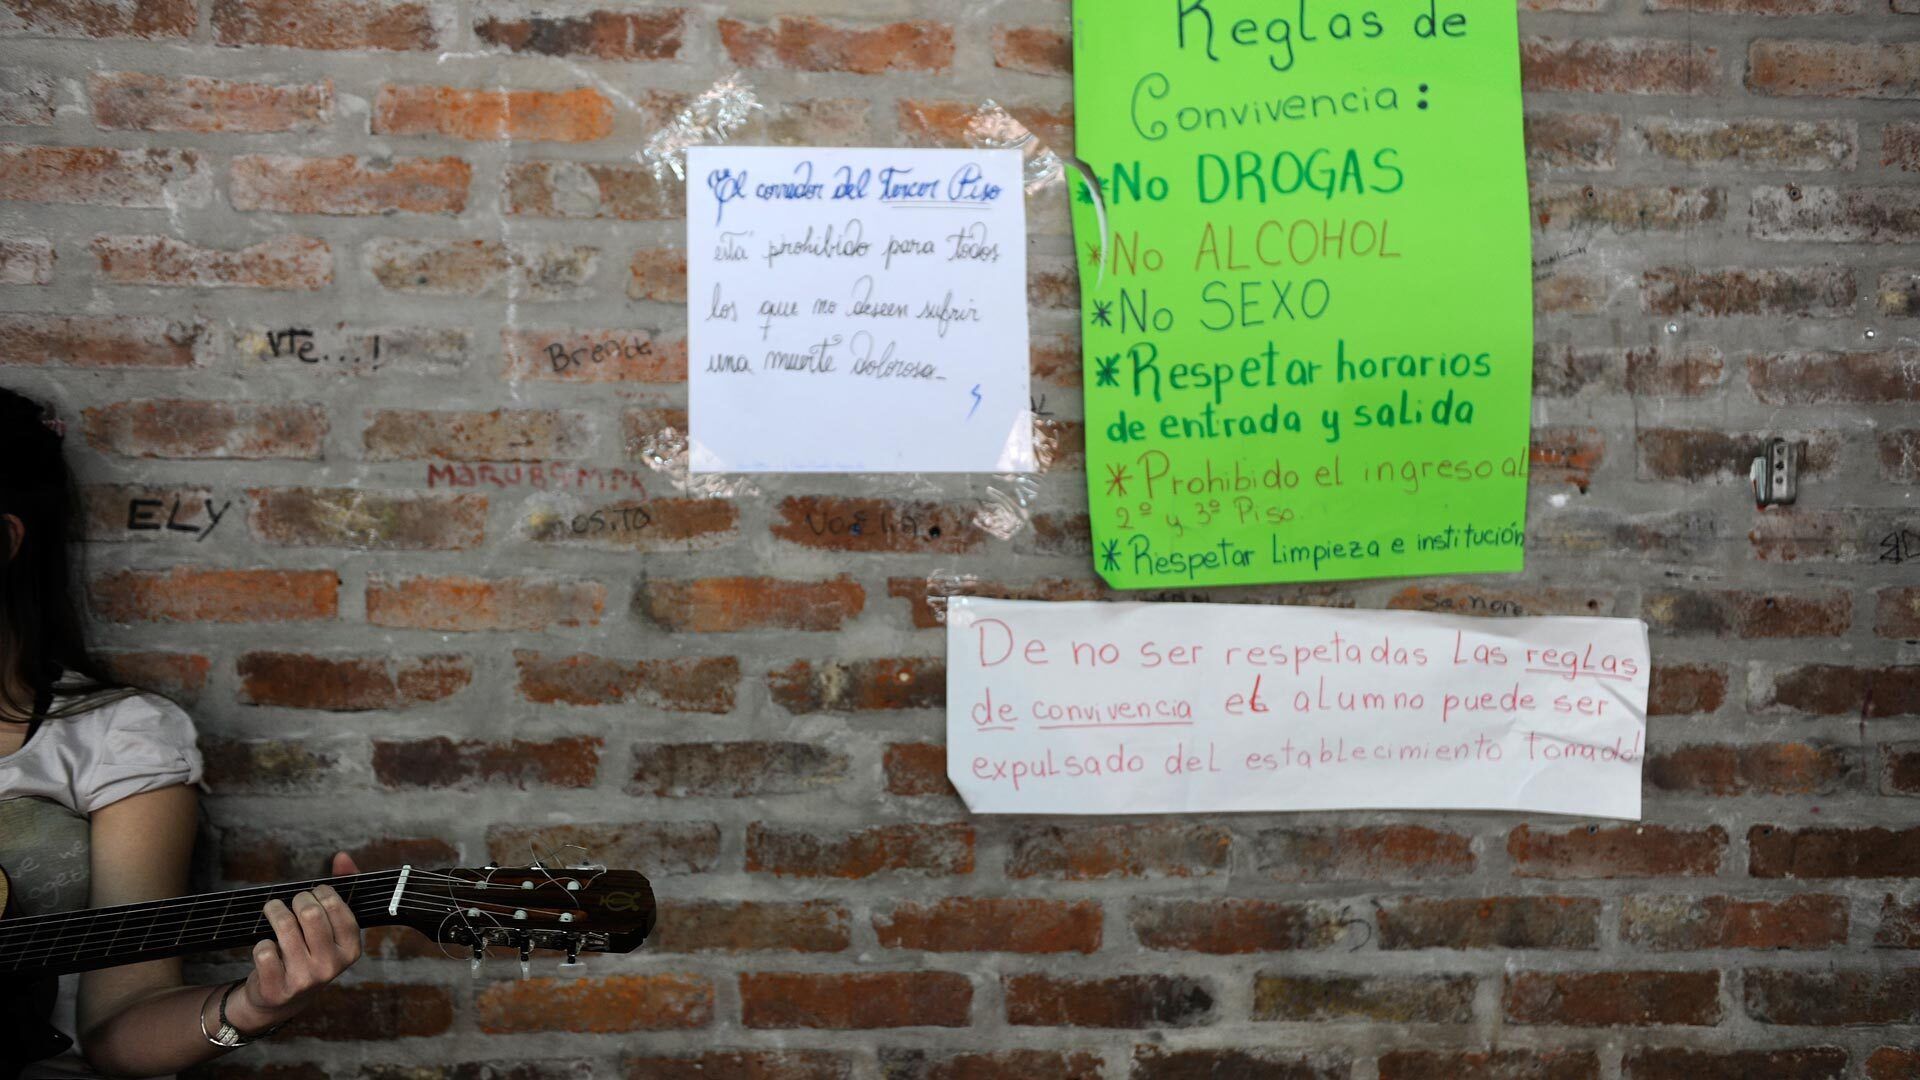 El corredor del Tercer Piso
está prohibido para todos
los que no deseen sufrir
una muerte dolorosa_
Reglas de
Convivencia:
*No DROGAS
*No ALCOHOL
*No SEXO
*Respetar horarios
de entrada y salida
*Prohibido el ingreso al
2º y 3º Piso.
*Respetar Limpieza e institución
De no ser respetadas las reglas
de convivencia el alumno puede ser
expulsado del establecimiento tomado!
VTe...!
ELY